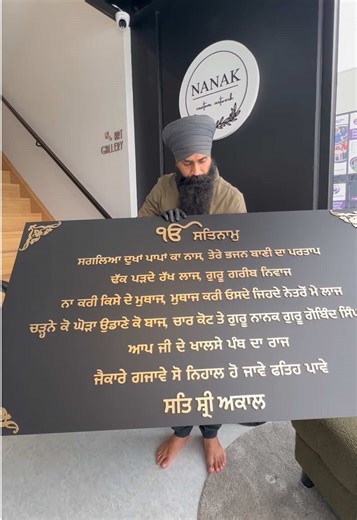 NANAK
ART
GALLERY
ੴ ਸਤਿਨਾਮੁ
ਸਗਲਿਆ ਦੁਖਾਂ ਪਾਪਾਂ ਕਾ ਨਾਸ, ਤੇਰੇ ਭਜਨ ਬਾਣੀ ਦਾ ਪਰਤਾਪ
ਢੱਕ ਪੜਦੇ ਰੱਖ ਲਾਜ, ਗੁਰੂ ਗਰੀਬ ਨਿਵਾਜ
ਨਾ ਕਰੀ ਕਿਸੇ ਦੇ ਮੁਥਾਜ, ਮੁਥਾਜ ਕਰੀ ਓਸਦੇ ਜਿਹਦੇ ਨੇਤਰੋਂ ਮੇ ਲਾਜ
ਚੜ੍ਹਨੇ ਕੋ ਘੋੜਾ ਉਡਾਣੇ ਕੋ ਬਾਜ, ਚਾਰ ਕੋਟ ਤੇ ਗੁਰੂ ਨਾਨਕ ਗੁਰੂ ਗੋਬਿੰਦ
ਆਪ ਜੀ ਦੇ ਖਾਲਸੇ ਪੰਥ ਦਾ ਰਾਜ
ਜੈਕਾਰੇ ਗਜਾਵੇ ਸੋ ਨਿਹਾਲ ਹੋ ਜਾਵੇ ਫਤਿਹ ਪਾਵੇ
ਸਤਿ ਸ੍ਰੀ ਅਕਾਲ